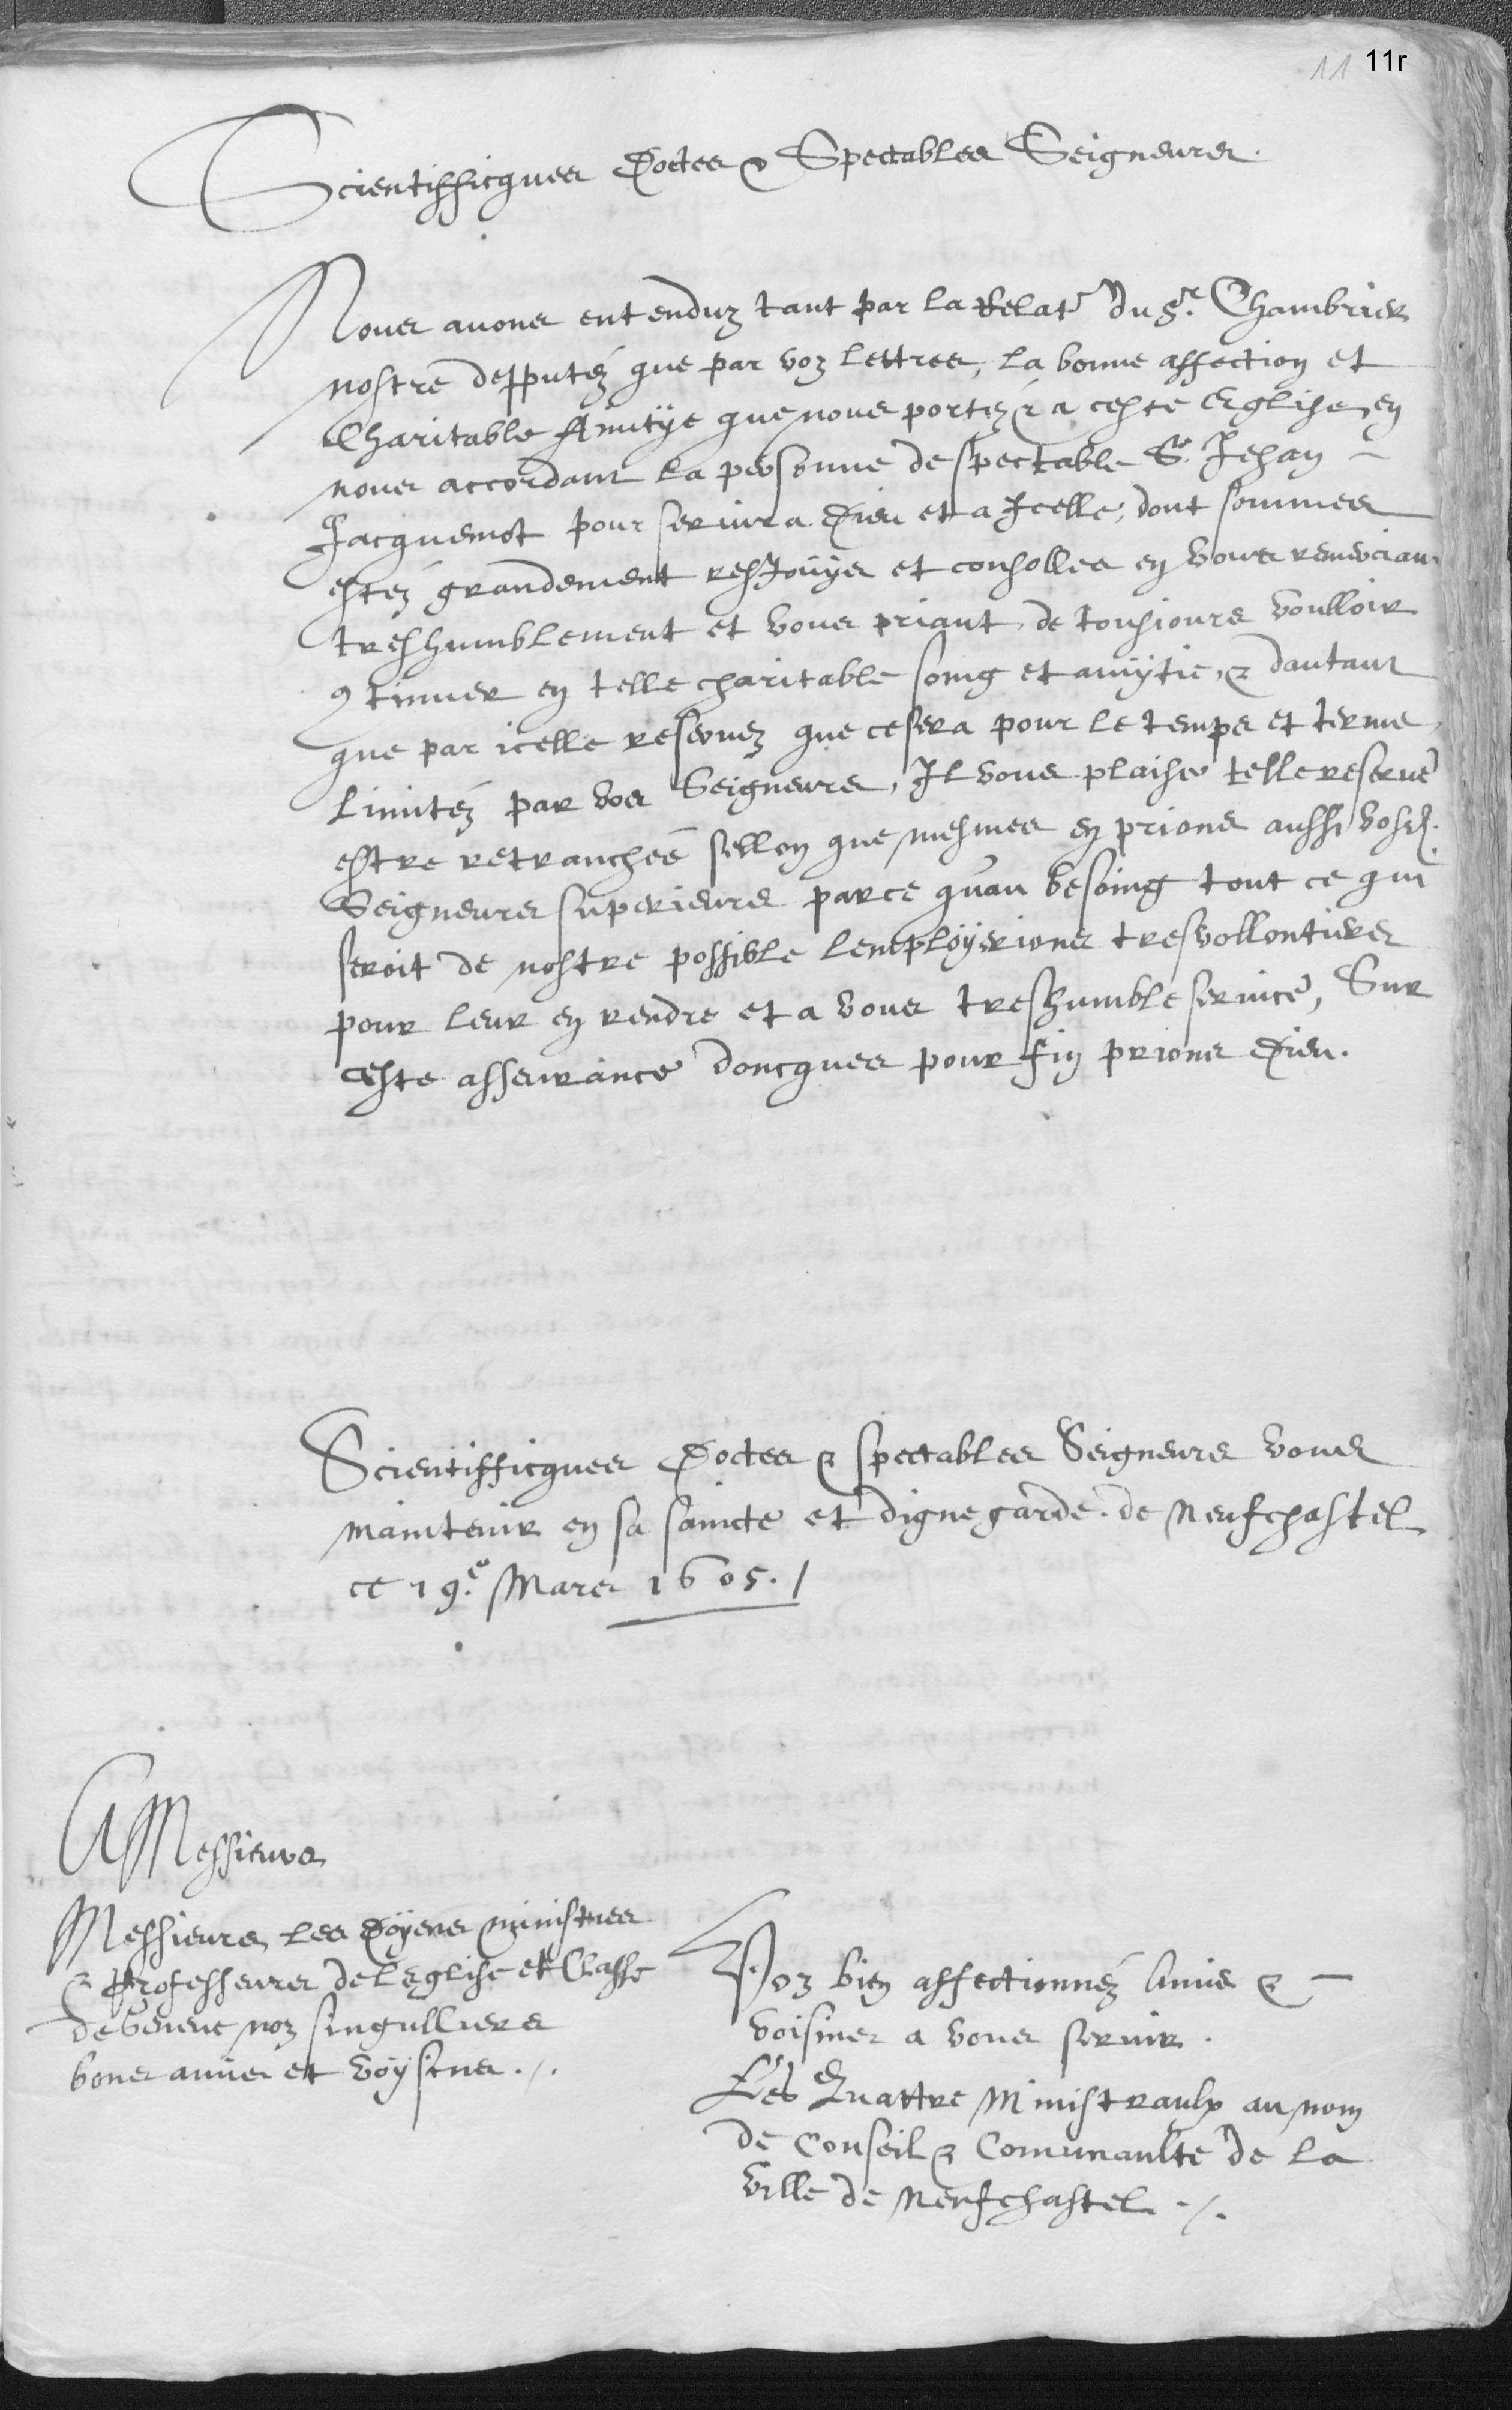 11 11r
Scientifficques Doctes & Spectables Seigneurs.
Nous avons entenduz tant par la Relat. du Sr. Chambrier
nostre depputéz que par voz lettres, la bonne affection et
Charitable Amitÿe que nous portez & a ceste Eglise, en
nous accordant la personne de spectable Sr. Jehan
Jacquemot pour servir a Dieu et a Icelle, dont sommes
estéz grandement resJouÿs et consolles en vous remerciant
treshumblement et vous priant de tousiours voulloir
9tinuer en telle charitable soing et amÿtie, & dautant
que par icelle reservez que ce sera pour le temps et terme
limitéz par vos Seigneurs, Il vous plaise telle reserve
estre retranchee sellon que mesmes en prions aussi vosd.
Seigneurs superieurs parce qu'au besoing tout ce qui
seroit de nostre possible lemploÿerions tresvollontiers
pour leur en rendre et a vous treshumble service, Sur
ceste asseurance doncques pour fin prions Dieu.
Scientifficques Doctes & spectables Seigneurs vous
maintenir en sa saincte et digne garde. de Neufchastel
ce 19.e Mars 1605. /
A Messieurs
Messieurs les Doÿens ministres
& Professeurs de l'Eglise et Classe
de Geneve noz singulliers
bons amis et voÿsins ./.
Voz bien affectionnéz Amis &
voisins a vous servir.
Les Quattre Ministraulx au nom
de Conseil & Comunaulte de la
ville de Neufchastel ./.